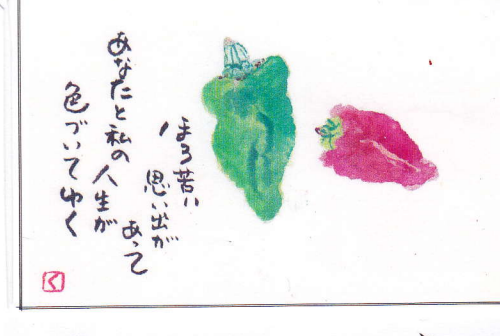 ほろ苦い
思い出が
あって
あなたと私の人生が
色づいてゆく
く